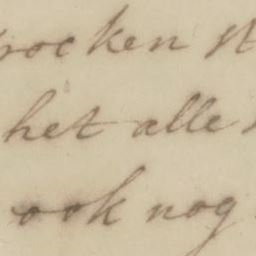 rocken st
het alle
ook nog